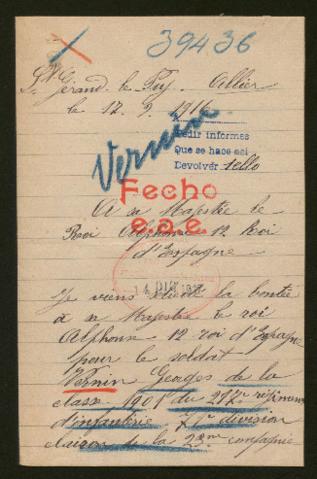 39436
St Gérand le Puy. Allier
le 12. 9. 1916
Pedir informes
Que se hace así
Devolver sello
Vernin
Fecho
e.a.e.
A sa Majestie le
Roi Alphonse 12 Roi
d'Espagne
Je viens la bontée
à sa Majestie le roi
Alphonse 12 roi d'Espagne
pour le soldat
Vernin Georges de la
classe 1901 du 217e régiment
d'infanterie 71e division
clairon de la 23me compagnie